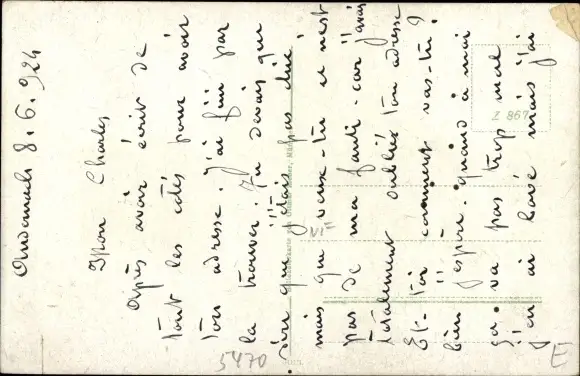 Andernach 8.6.924
Mon Charles
Après avoir écrit de
tout les cotés pour avoir
ton adresse. j'ai fini par
la trouver. Tu devais que
dire que j'étais pas chic!
mais que veux-tu ce n'est
pas de ma faute. car j'avais
totalement oubliés ton adresse
Et toi comment vas-tu?
bien j'espère. quand à moi
ça va pas trop mal
j'en ai bavé mais j'ai
Z 867
5470
E